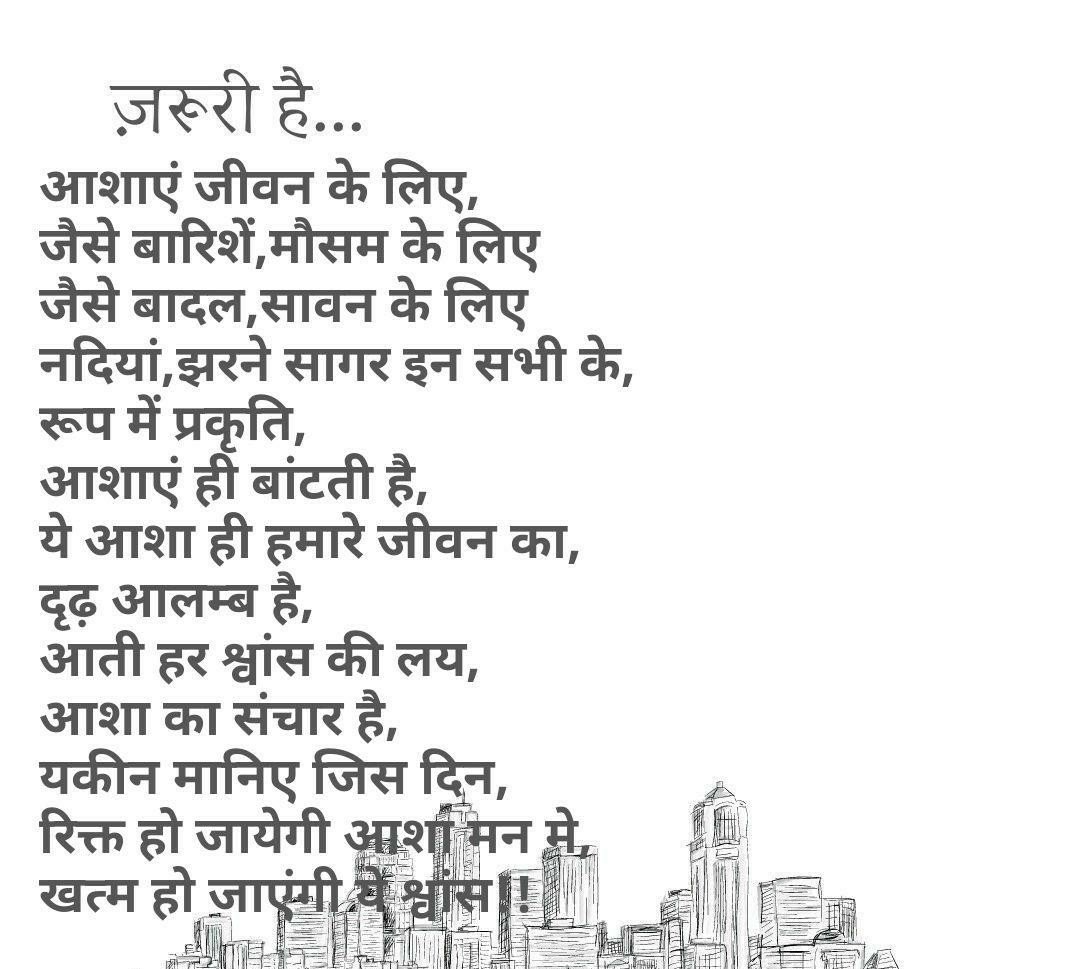 ज़रूरी है...
आशाएं जीवन के लिए,
जैसे बारिशें,मौसम के लिए
जैसे बादल,सावन के लिए
नदियां,झरने सागर इन सभी के,
रूप में प्रकृति,
आशाएं ही बांटती है,
ये आशा ही हमारे जीवन का,
दृढ़ आलम्ब है,
आती हर श्वांस की लय,
आशा का संचार है,
यकीन मानिए जिस दिन,
रिक्त हो जायेगी आशा मन मे,
खत्म हो जाएंगी ये श्वांस!!